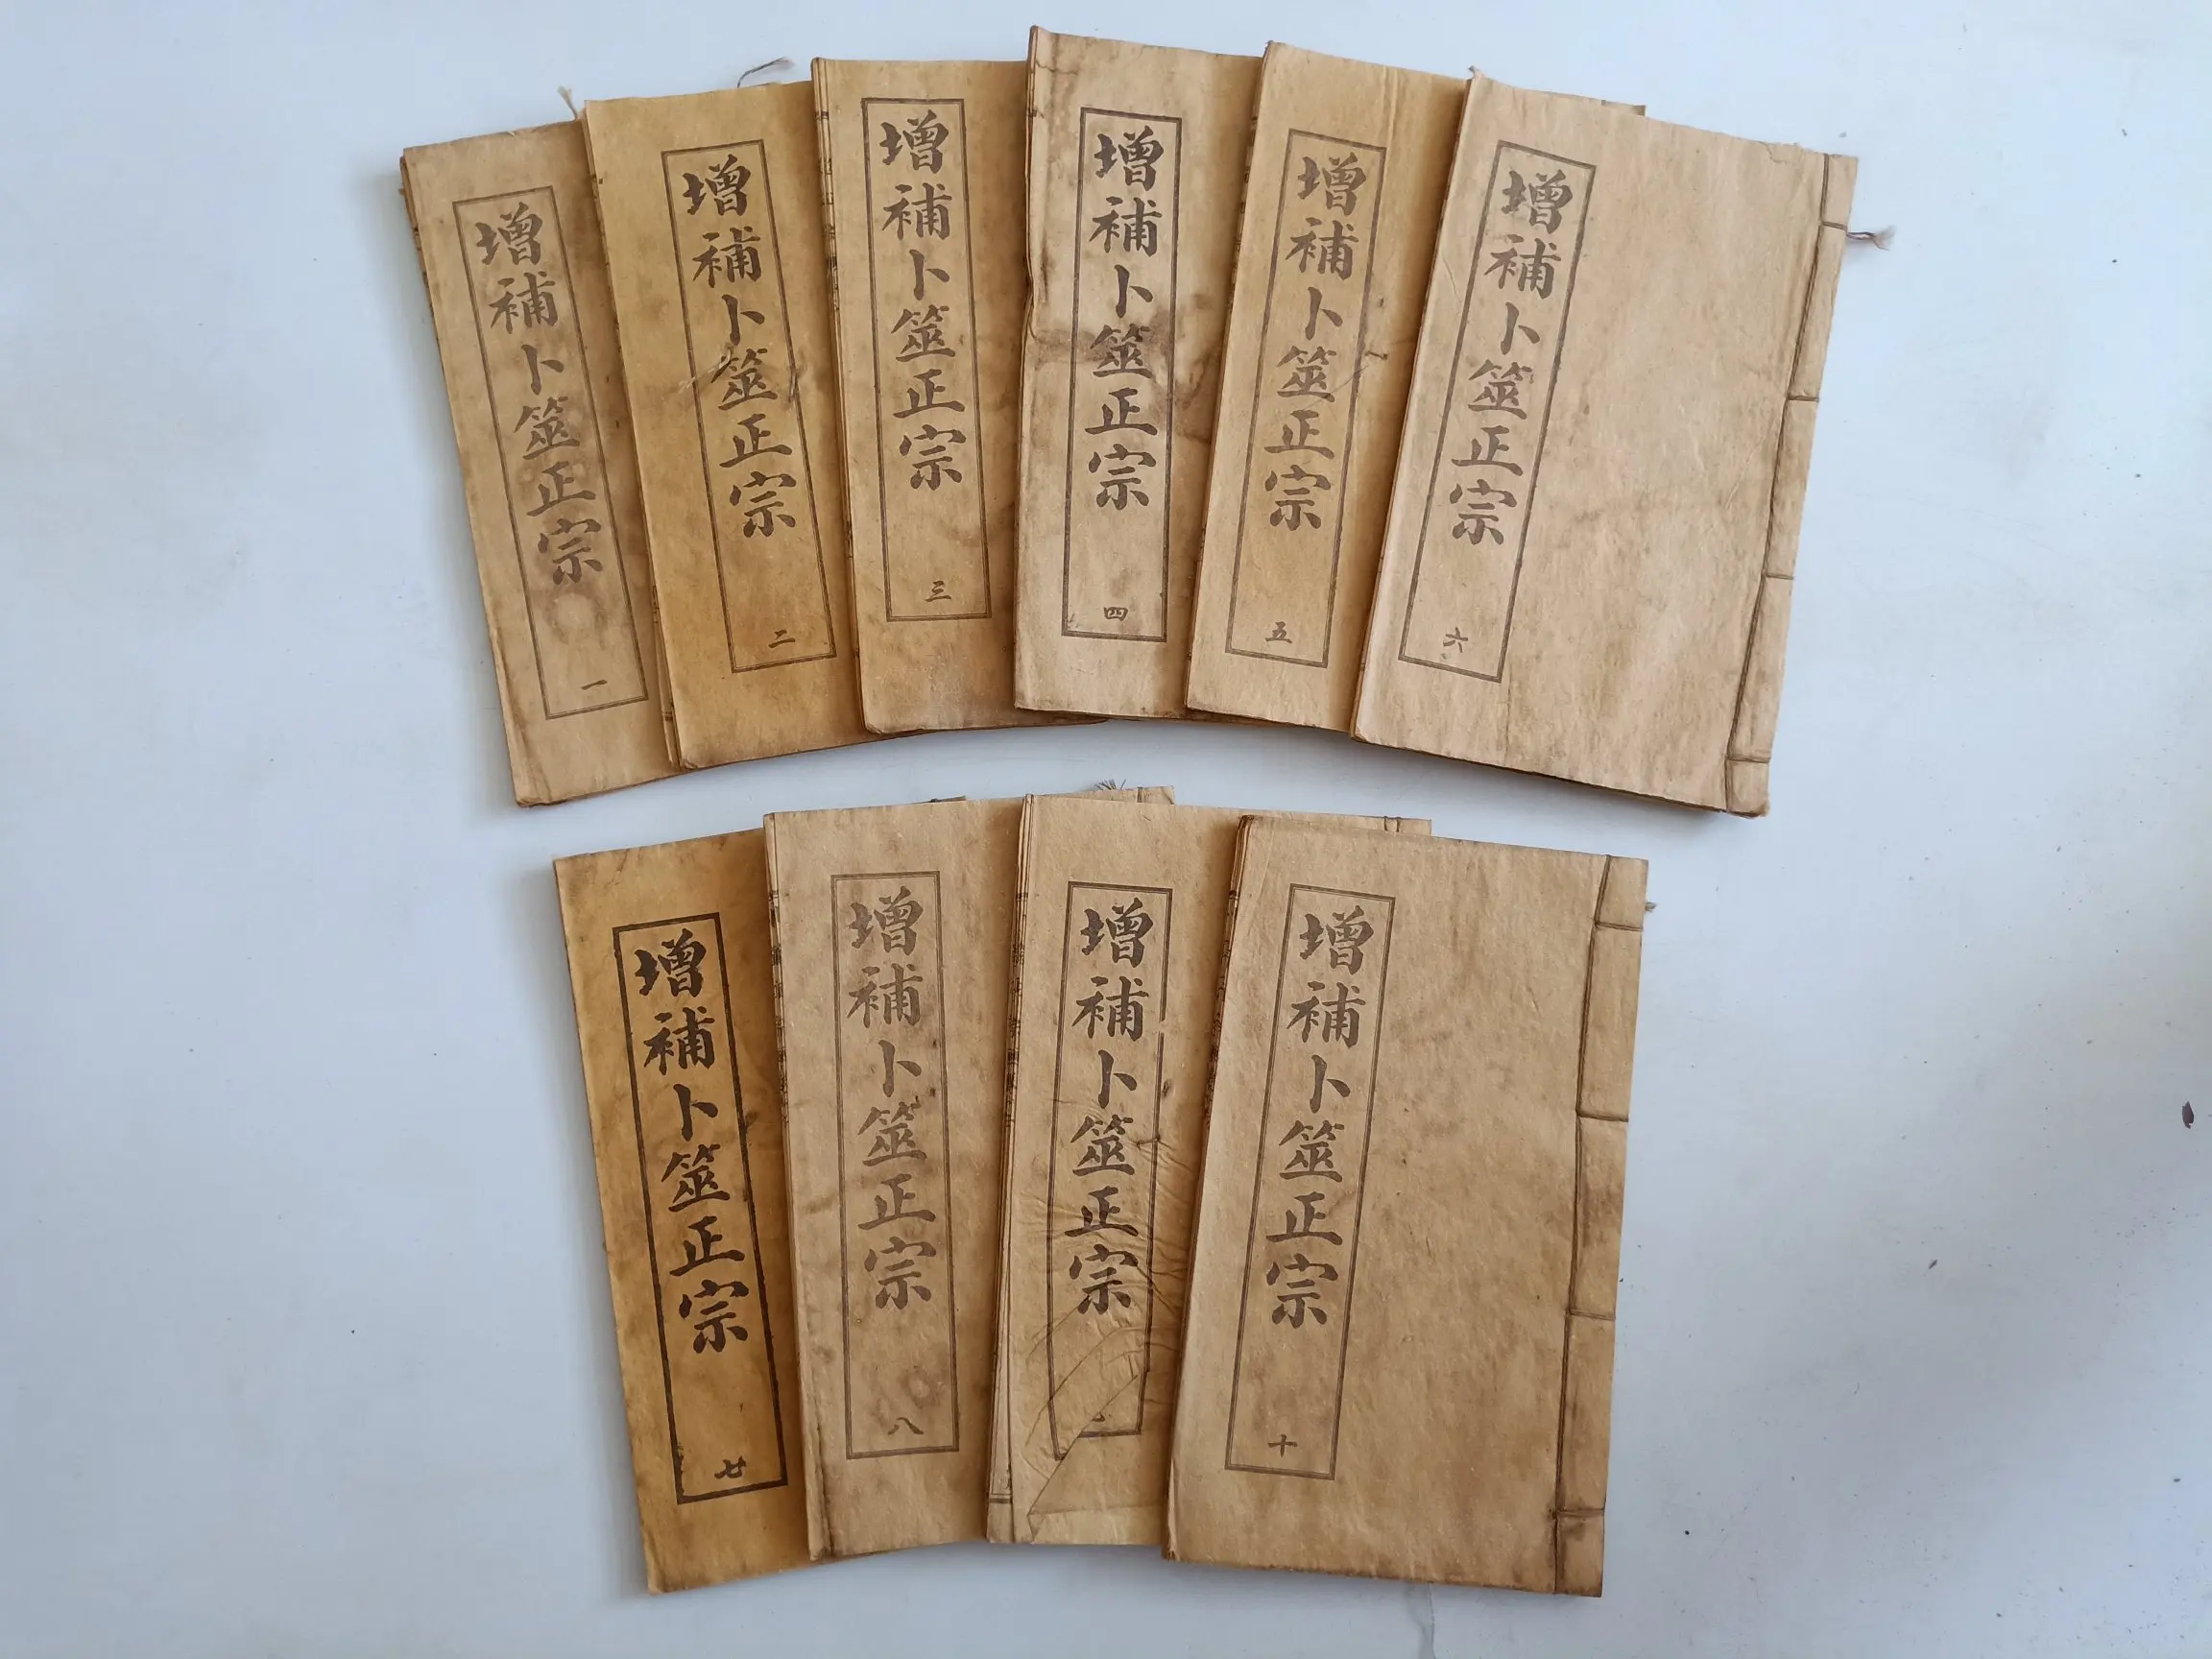 增補卜筮正宗 一
增補卜筮正宗 二
增補卜筮正宗 三
增補卜筮正宗 四
增補卜筮正宗 五
增補卜筮正宗 六
增補卜筮正宗 七
增補卜筮正宗 八
增補卜筮正宗
增補卜筮正宗 十